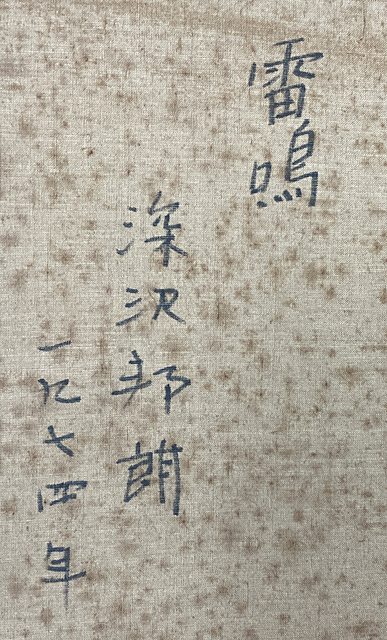 雷鳴
深沢邦朗
一九七四年